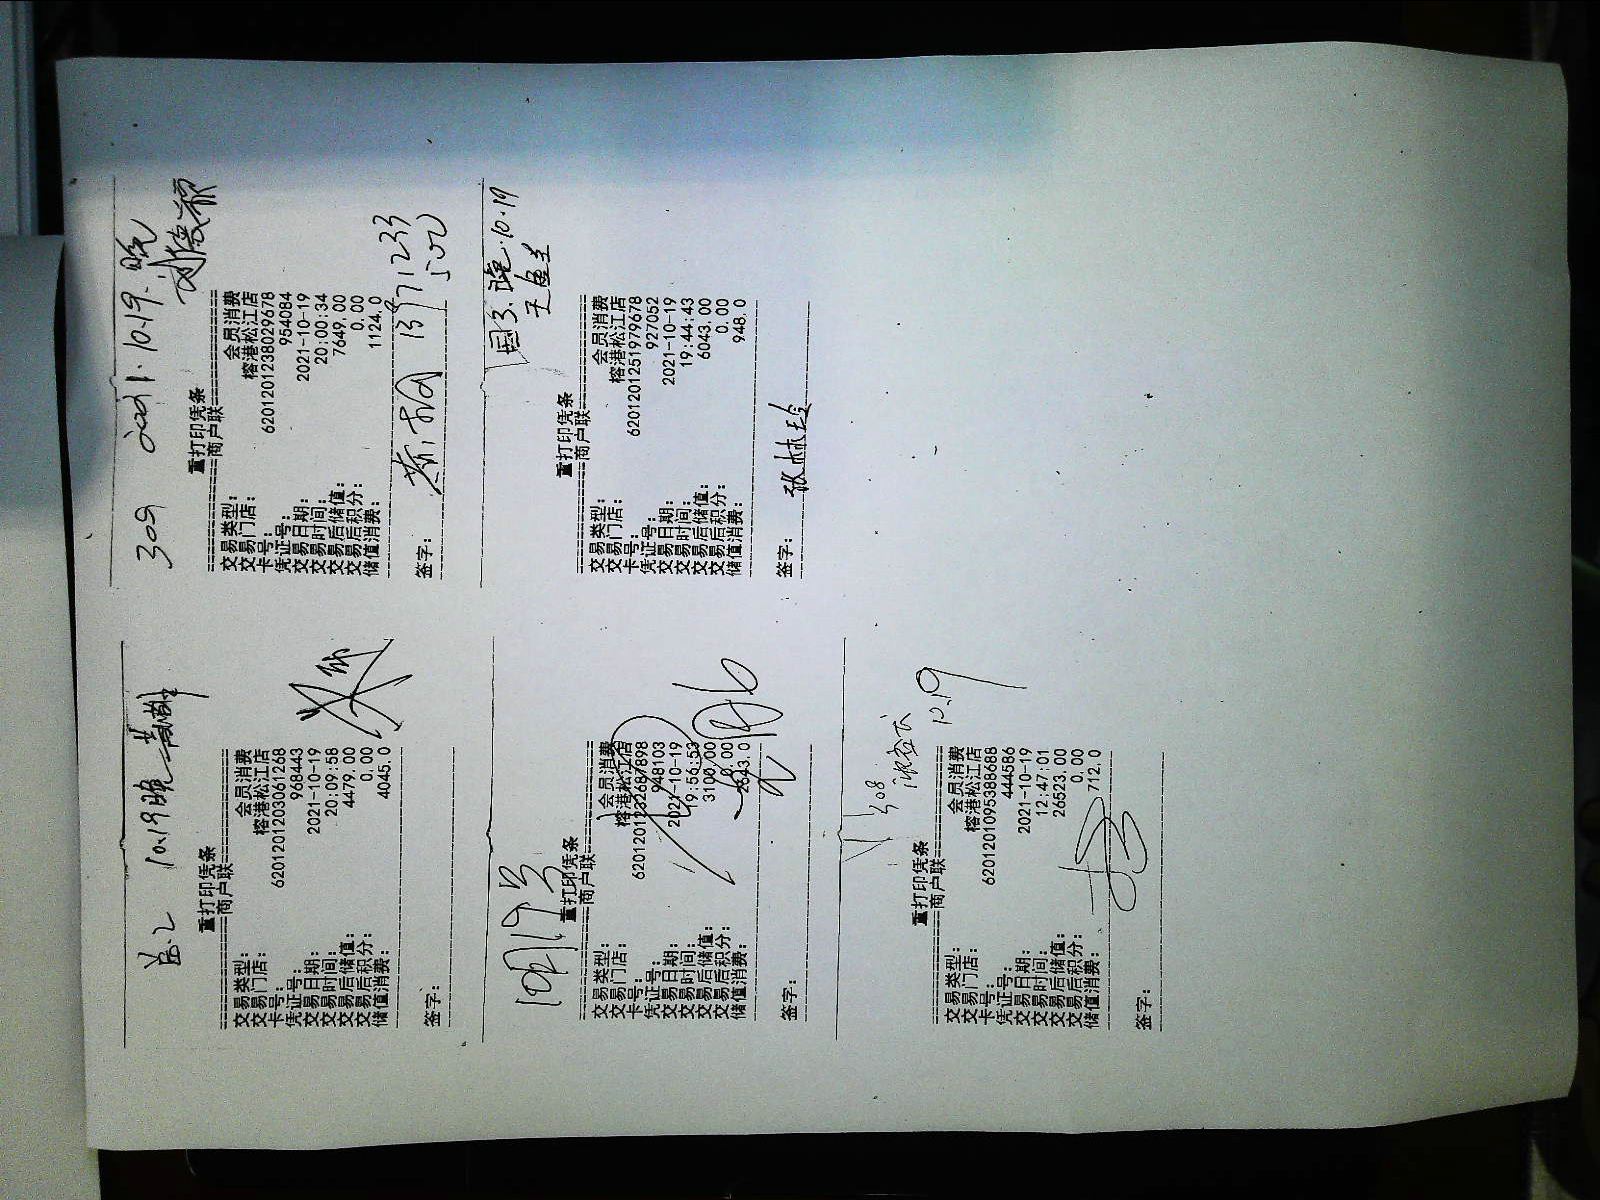 10.19晚
重打印凭条
商户联
交易类型: 会员消费
交易门店: 榕港松江店
卡号: 6201201203061268
凭证号: 968443
交易日期: 2021-10-19
交易时间: 20:09:58
交易后储值: 4479.00
交易后积分: 0.00
储值消费: 4045.0
签字:
309 2021.10.19.晚
重打印凭条
商户联
交易类型: 会员消费
交易门店: 榕港松江店
卡号: 6201201238029678
凭证号: 954084
交易日期: 2021-10-19
交易时间: 20:00:34
交易后储值: 7649.00
交易后积分: 0.00
储值消费: 1124.0
签字:
10月19号
重打印凭条
商户联
交易类型: 会员消费
交易门店: 榕港松江店
卡号: 6201201232687898
凭证号: 948103
交易日期: 2021-10-19
交易时间: 19:56:53
交易后储值: 3100.00
交易后积分: 0.00
储值消费:
签字:
国3.晚.10.19
重打印凭条
商户联
交易类型: 会员消费
交易门店: 榕港松江店
卡号: 6201201251979678
凭证号: 927052
交易日期: 2021-10-19
交易时间: 19:44:43
交易后储值: 6043.00
交易后积分: 0.00
储值消费: 948.0
签字: 张林玲
308
10.19
重打印凭条
商户联
交易类型: 会员消费
交易门店: 榕港松江店
卡号: 6201201095388688
凭证号: 444586
交易日期: 2021-10-19
交易时间: 12:47:01
交易后储值: 26523.00
交易后积分: 0.00
储值消费: 712.0
签字: